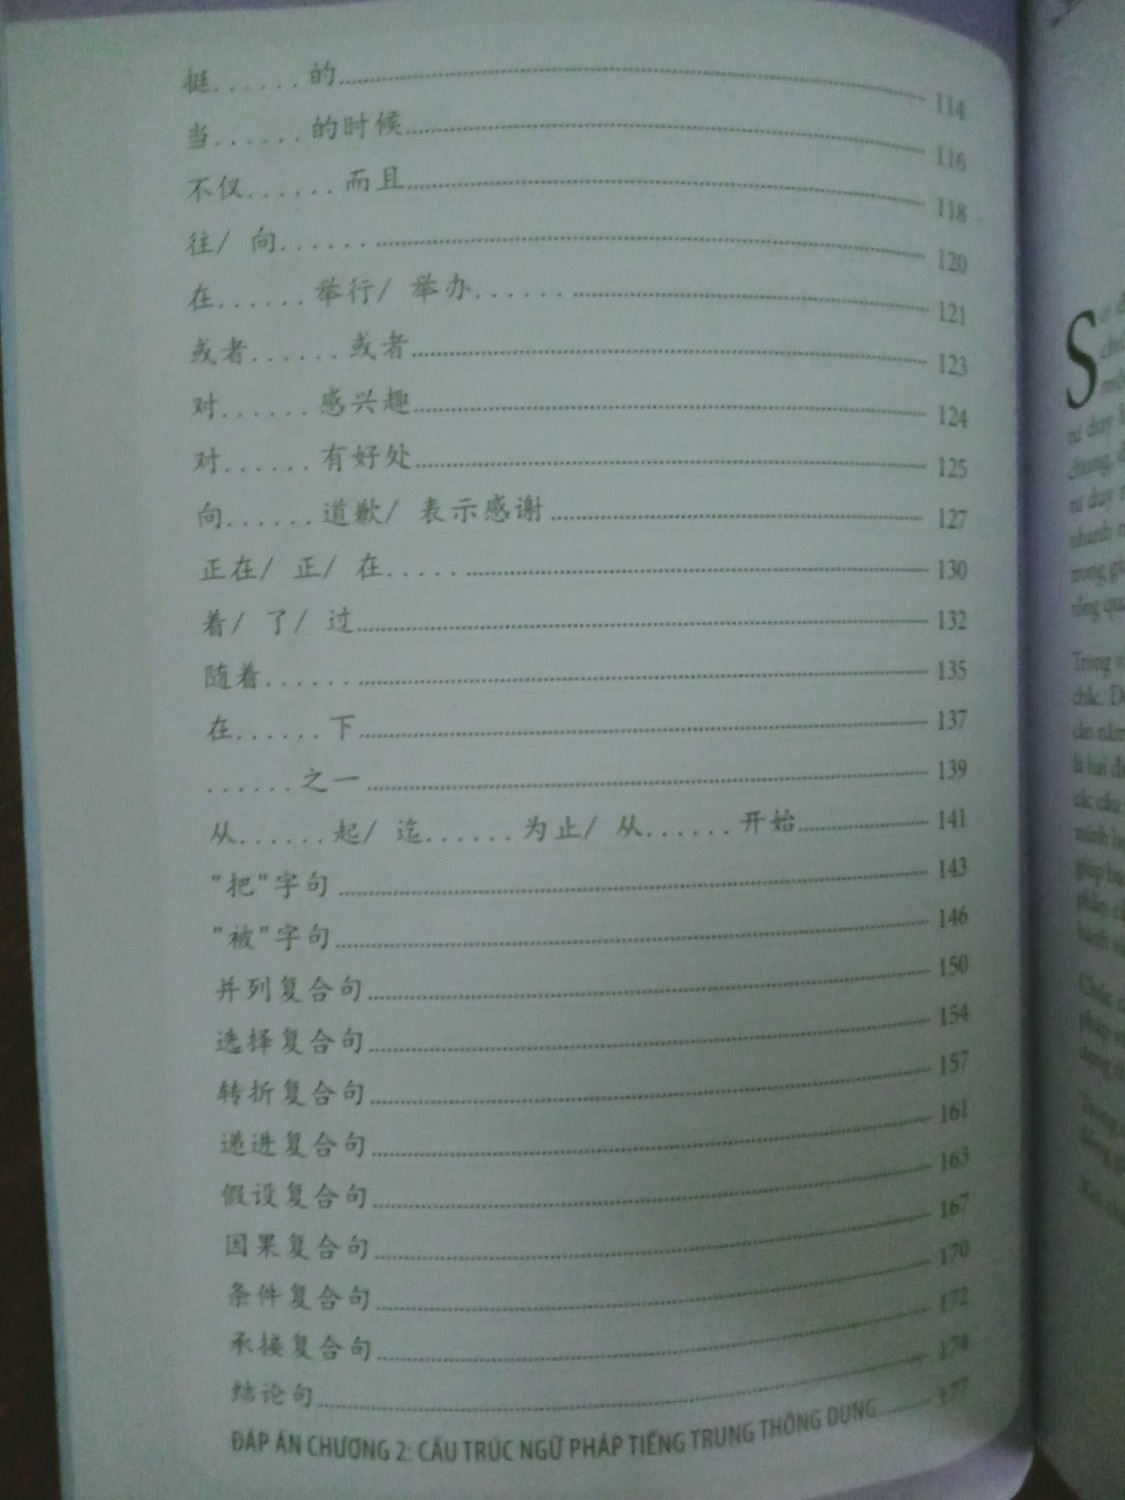 挺......的 114
当......的时候 116
不仅......而且 118
往/ 向...... 120
在......举行/ 举办...... 121
或者......或者 123
对......感兴趣 124
对......有好处 125
向......道歉/ 表示感谢 127
正在/ 正/ 在..... 130
着/ 了/ 过 132
随着...... 135
在......下 137
......之一 139
从......起/ 迄......为止/ 从......开始 141
"把"字句 143
"被"字句 146
并列复合句 150
选择复合句 154
转折复合句 157
递进复合句 161
假设复合句 163
因果复合句 167
条件复合句 170
承接复合句 172
结论句 174
ĐÁP ÁN CHƯƠNG 2: CẤU TRÚC NGỮ PHÁP TIẾNG TRUNG THÔNG DỤNG 177